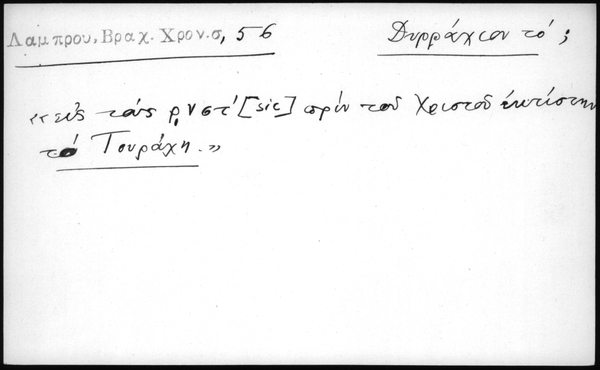 Λαμπρου, Βραχ. Χρον. σ, 56
Δυρράχιον τό ;
«εἰς τοὺς ρνστ' [sic] πρὶν τοῦ Χριστοῦ ἐκτίστην
τὸ Τουράχη.»